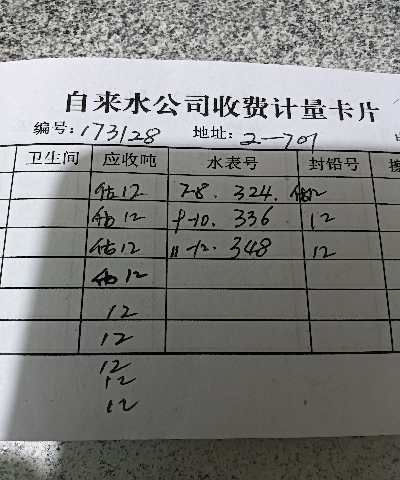 自来水公司收费计量卡片
编号:173128 地址:2-701
卫生间 应收吨 水表号 封铅号
估12 7-8. 324. 估12
估12 9-10. 336 12
估12 11-12. 348 12
估12
12
12
12
12
12